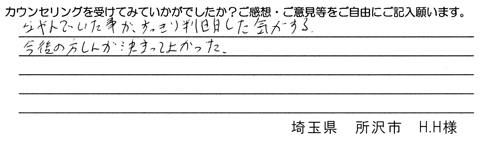 カウンセリングを受けてみていかがでしたか？ご感想・ご意見等をご自由にご記入願います。
なやんでいた事が、すっきり判明した気がする。
今後の方しんが決まってよかった。
埼玉県　所沢市　H.H様